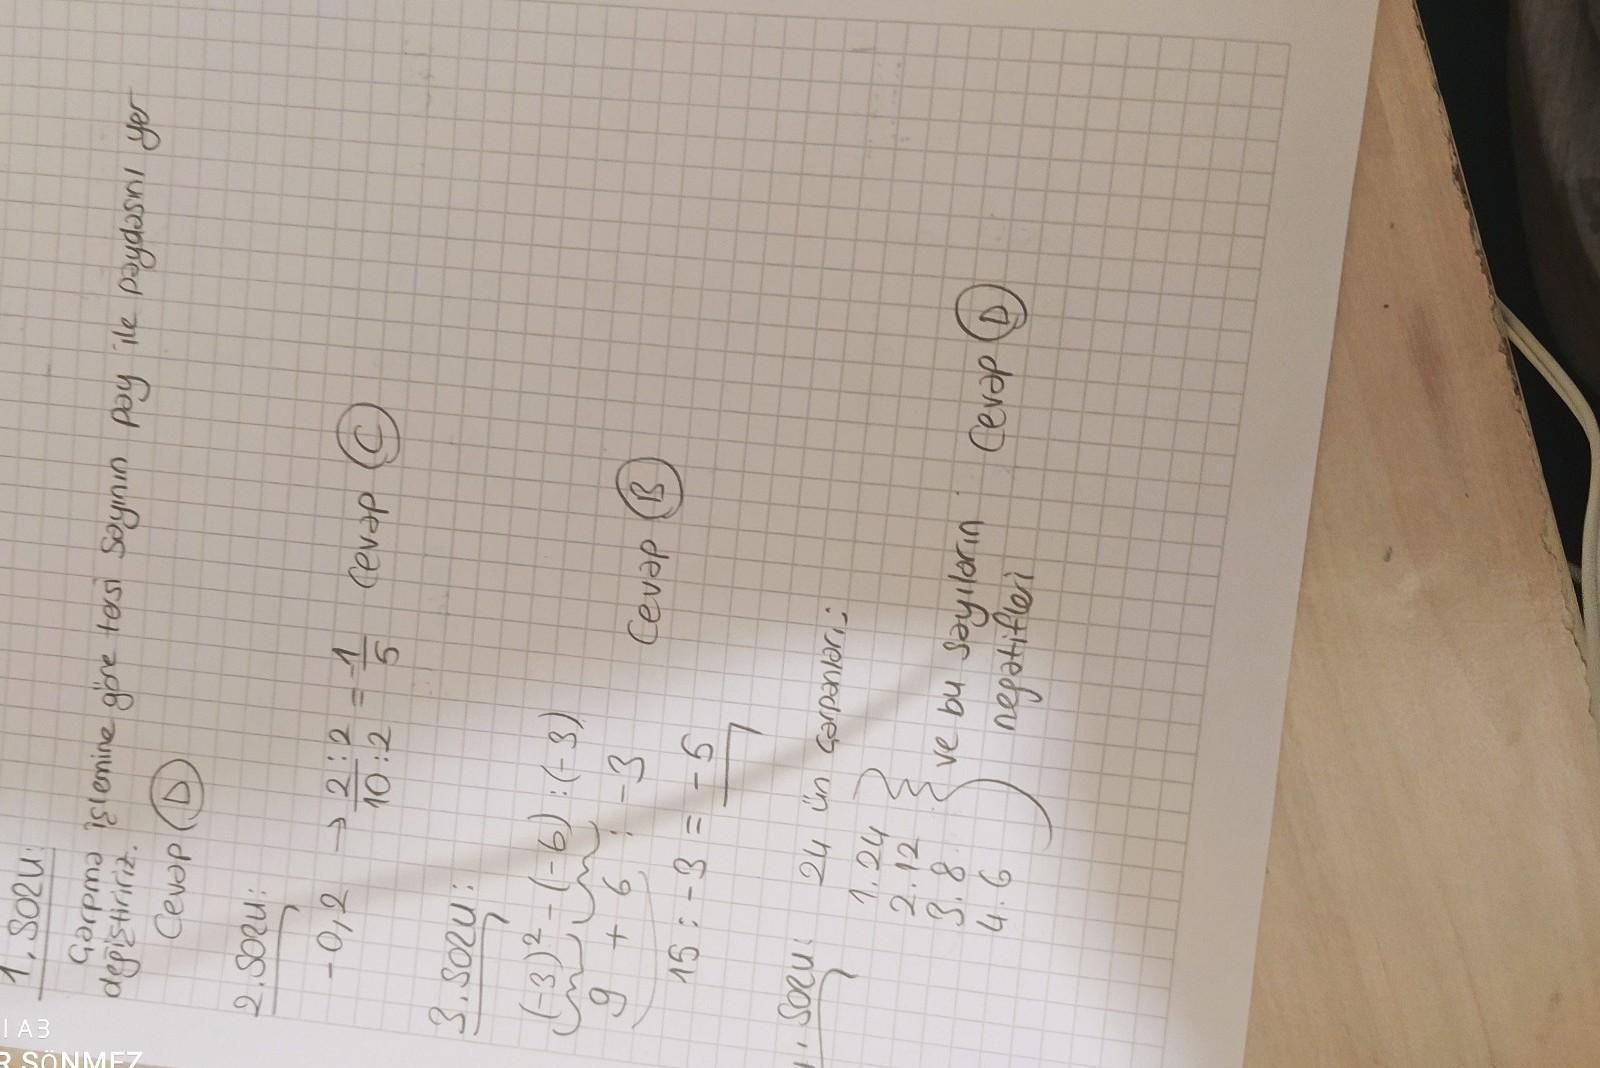 1. soru:
Çarpma işlemine göre tersi sayının pay ile paydasını yer
değiştiririz.
Cevap D
2. soru:
-0,2 → 2:2/10:2 = -1/5 Cevap C
3. soru:
(-3)² - (-6) : (-3)
9 + 6 : -3
Cevap B
15 : -3 = -5
soru: 24 ün çarpanları:
1.24
2.12
3.8
4.6
ve bu sayıların
negatifleri
Cevap D
A3
SÖNMEZ